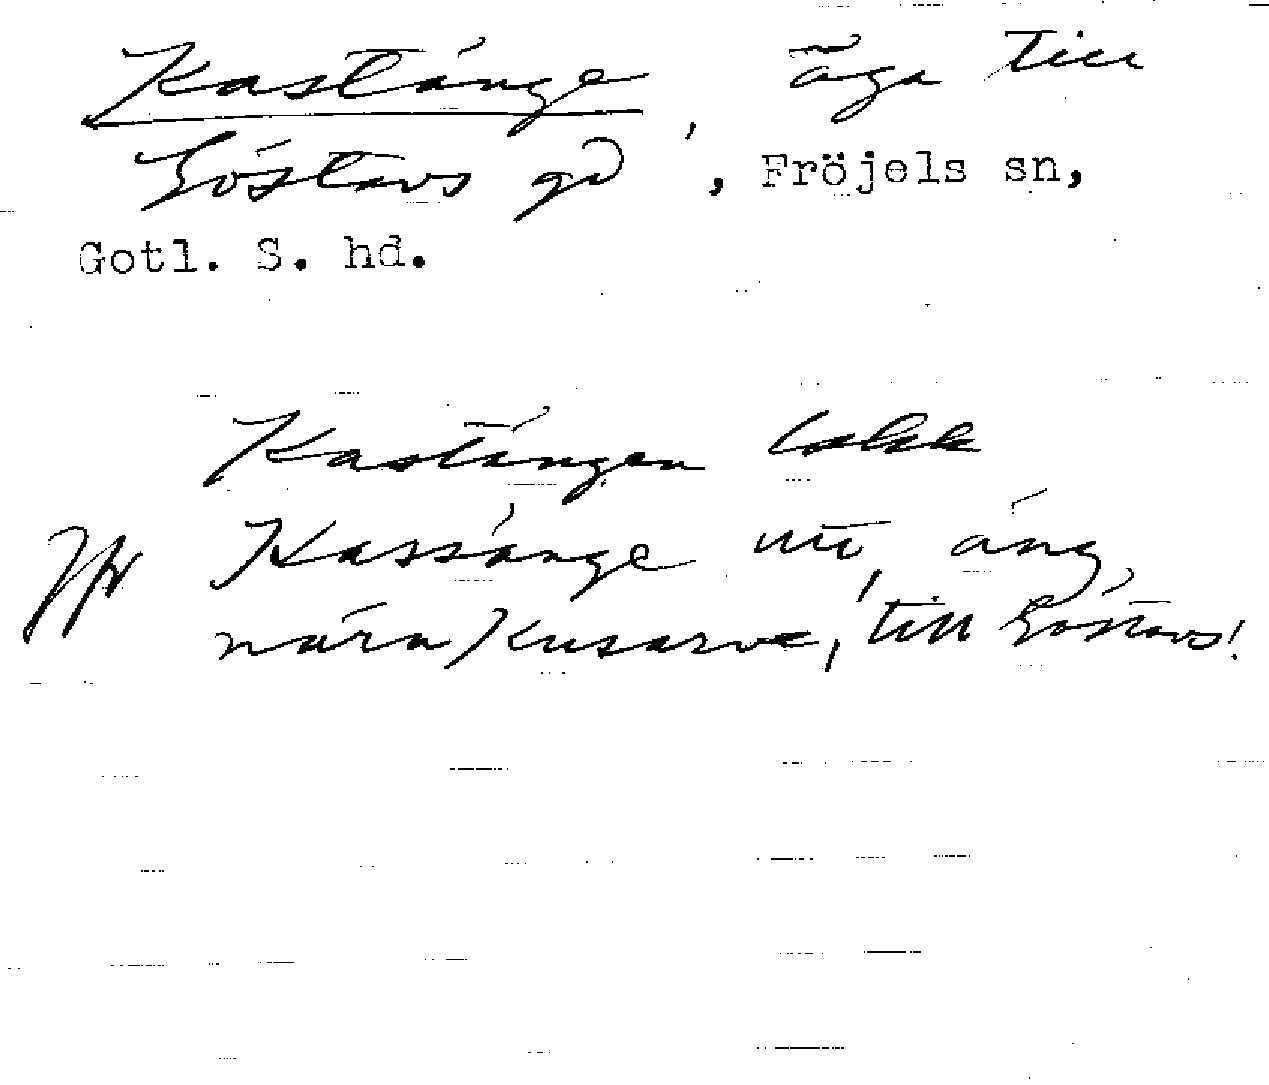 Kastänge, äga till
Göstavs gd, Fröjels sn,
Gotl. S. hd.
Kastängen
Jfr Kassänge utt, äng,
nära Kusarve, till Göstavs!